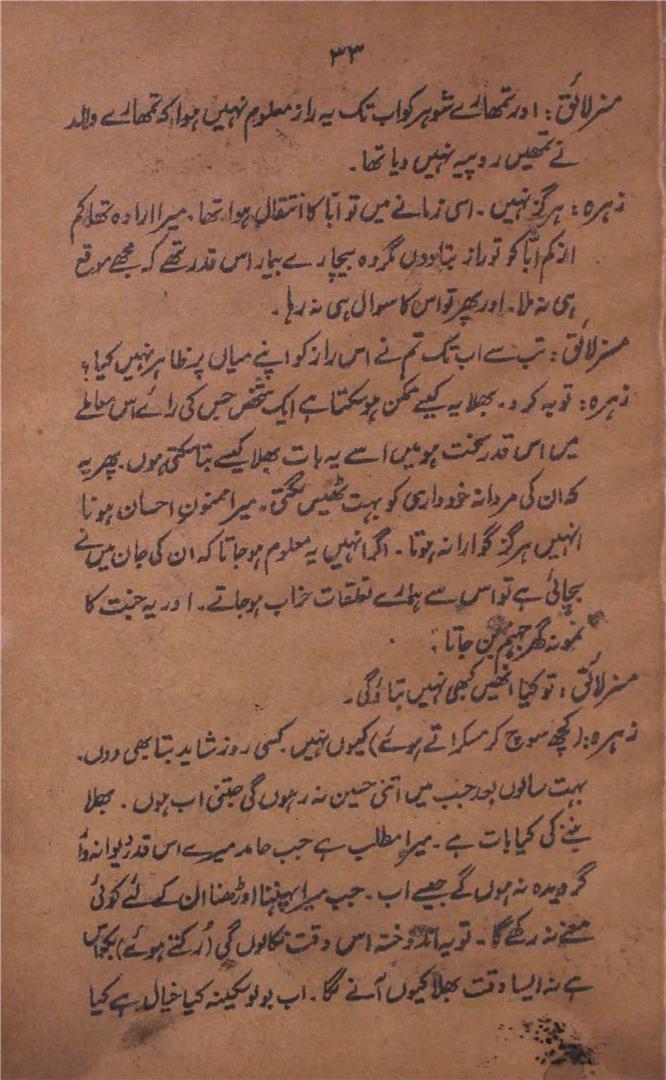 ۳۳
مسز لائق : اور تمھارے شوہر کو اب تک یہ راز معلوم نہیں ہوا کہ تمھارے والد
نے تمھیں روپیہ نہیں دیا تھا۔
زہرہ : ہرگز نہیں۔ اسی زمانے میں تو ابّا کا انتقال ہوا تھا۔ میرا ارادہ تھا کم
از کم ابّا کو تو راز بتا دوں مگر وہ بیچارے بیمار اس قدر تھے کہ مجھے موقع
ہی نہ ملا۔ اور پھر تو اس کا سوال ہی نہ رہا۔
مسز لائق : تب سے اب تک تم نے اس راز کو اپنے میاں پر ظاہر نہیں کیا؟
زہرہ : توبہ کرو۔ بھلا یہ کیسے ممکن ہو سکتا ہے ایک شخص جس کی رائے اس معاملے
میں اس قدر سخت ہو میں اسے یہ بات بھلا کیسے بتا سکتی ہوں۔ پھر یہ
کہ ان کی مردانہ خودداری کو بہت ٹھیس لگتی۔ میرا ممنونِ احسان ہونا
انہیں ہرگز گوارا نہ ہوتا۔ اگر انہیں یہ معلوم ہو جاتا کہ ان کی جان میں نے
بچائی ہے تو اس سے ہمارے تعلقات خراب ہو جاتے۔ اور یہ جنت کا
نمونہ گھر جہنم بن جاتا۔
مسز لائق : تو کیا انھیں کبھی نہیں بتاؤ گی۔
زہرہ : (کچھ سوچ کر مسکراتے ہوئے) کیوں نہیں۔ کسی روز شاید بتا بھی دوں۔
بہت سالوں بعد جب میں اتنی حسین نہ رہوں گی جتنی اب ہوں۔ بھلا
ہنسنے کی کیا بات ہے۔ میرا مطلب ہے جب حامد میرے اس قدر دیوانہ و
گرویدہ نہ ہوں گے جیسے اب۔ جب میرا پہننا اوڑھنا ان کے لئے کوئی
معنے نہ رکھے گا۔ تو یہ اندوختہ اس وقت نکالوں گی (رُکتے ہوئے) بکواس
ہے نہ ایسا وقت بھلا کیوں آنے لگا۔ اب بولو سکینہ کیا خیال ہے کیا